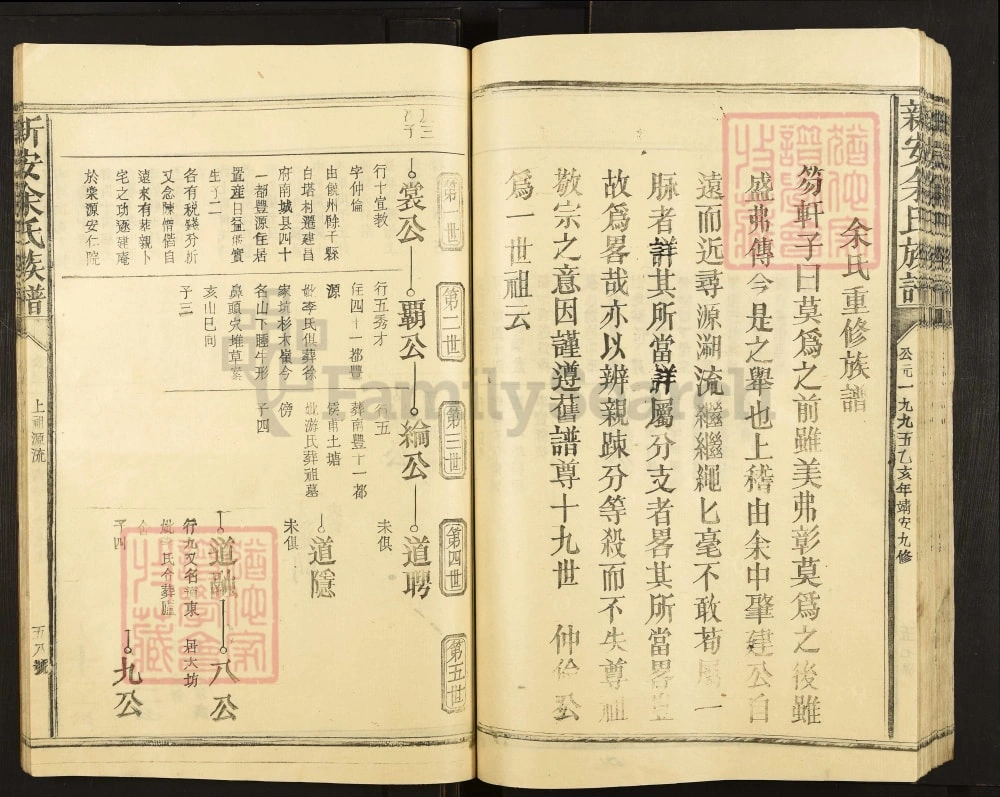 新安余氏族譜
公元一九九五乙亥年靖安九修
余氏重修族譜
笏軒子曰莫爲之前雖美弗彰莫爲之後雖
盛弗傳今是之舉也上稽由余中肇建公自
遠而近尋源溯流繼繼繩匕毫不敢苟屬一
脉者詳其所當詳屬分支者畧其所當畧
故爲畧哉亦以辨親踈分等殺而不失尊祖
敬宗之意因謹遵舊譜尊十九世 仲倫公
爲一世祖云
第一世
第二世
第三世
第四世
第五世
裳公
行十宣教
字仲倫
由饒州餘干縣
白塔村遷建昌
府南城县四十
一都豐源住居
置産日益儲實
生子二
各有税錢分析
又念陳僧偕自
遠來有葬親卜
宅之功遂建庵
於衆源安仁院
覇公
行五秀才
住四十一都豐
源
妣李氏俱葬徐
家坑杉木嶺今
名山下睡牛形
鼻頭穴堆草案
亥山巳向
子三
綸公
行五
葬南豐十一都
侯甫土塘
妣游氏葬祖墓
傍
子四
道聘
未俱
道隱
未俱
道融
行九又名
東
氏合葬
子四
八公
居大坊
九公
新安余氏族譜
上祖源流
五八號
FamilySearch